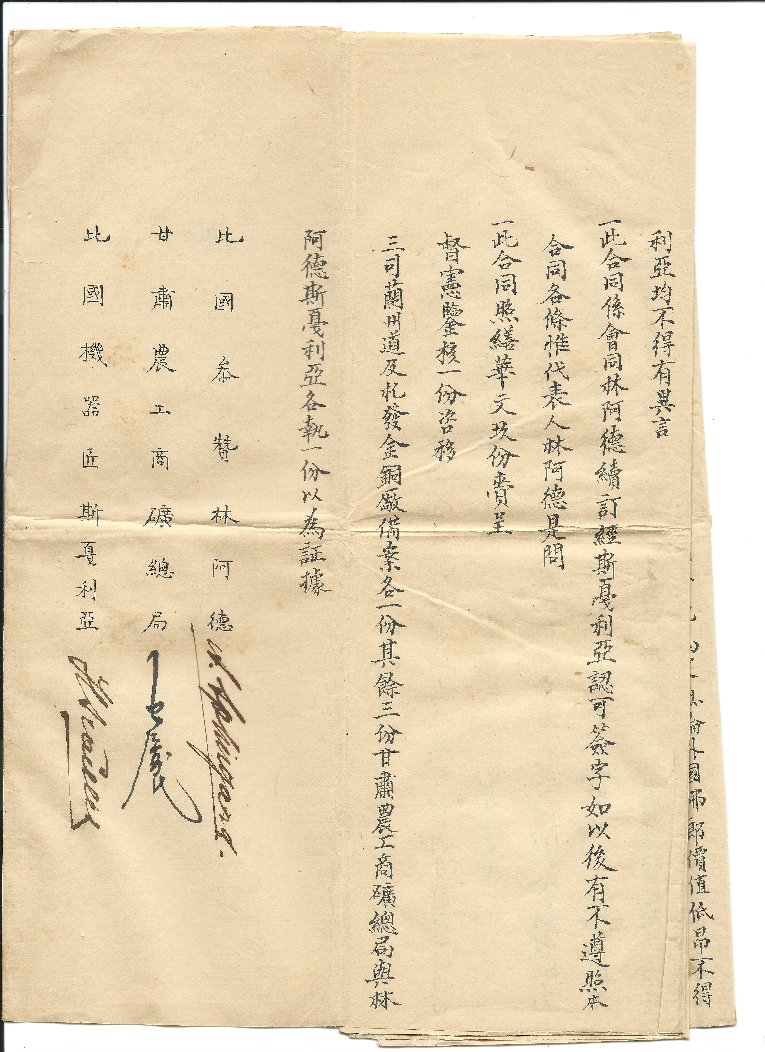 外國佛郎價值低昂不得
利亞均不得有異言
一此合同係會同林阿德續訂經斯戞利亞認可簽字如以後有不遵照本
合同各條惟代表人林阿德是問
一此合同照繕華文玖份賷呈
督憲鑒核一份咨移
三司蘭州道及札發金銅廠備案各一份其餘三份甘肅農工商礦總局與林
阿德斯戞利亞各執一份以為証據
比國叅贊林阿德
甘肅農工商礦總局
比國機器匠斯戞利亞